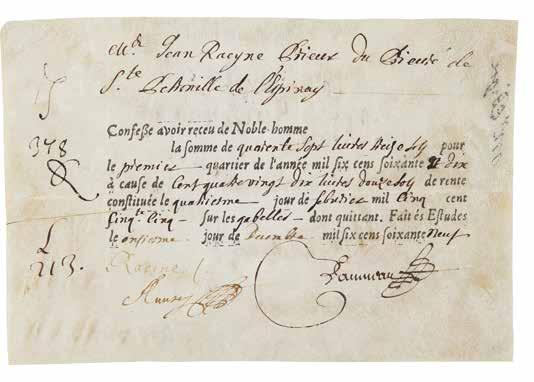 Mre Jean Racyne Prieur du Prieuré de
Ste Petronille de l'Epinay
Confesse avoir receu de Noble-homme
la somme de quarente sept livres treize sols pour
378
le premier quartier de l'année mil six cens soixante & dix
à cause de Cent quatre vingt dix livres douze sols de rente
constituée le quatriesme jour de febvrier mil cinq cent
cinqte cinq sur les gabelles dont quittant. Fait és Estudes
L
le onziesme jour de Decembre mil six cens soixante neuf
213.
Racine